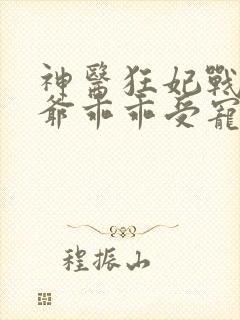 神醫狂妃戰
爺乖乖受寵
程振山